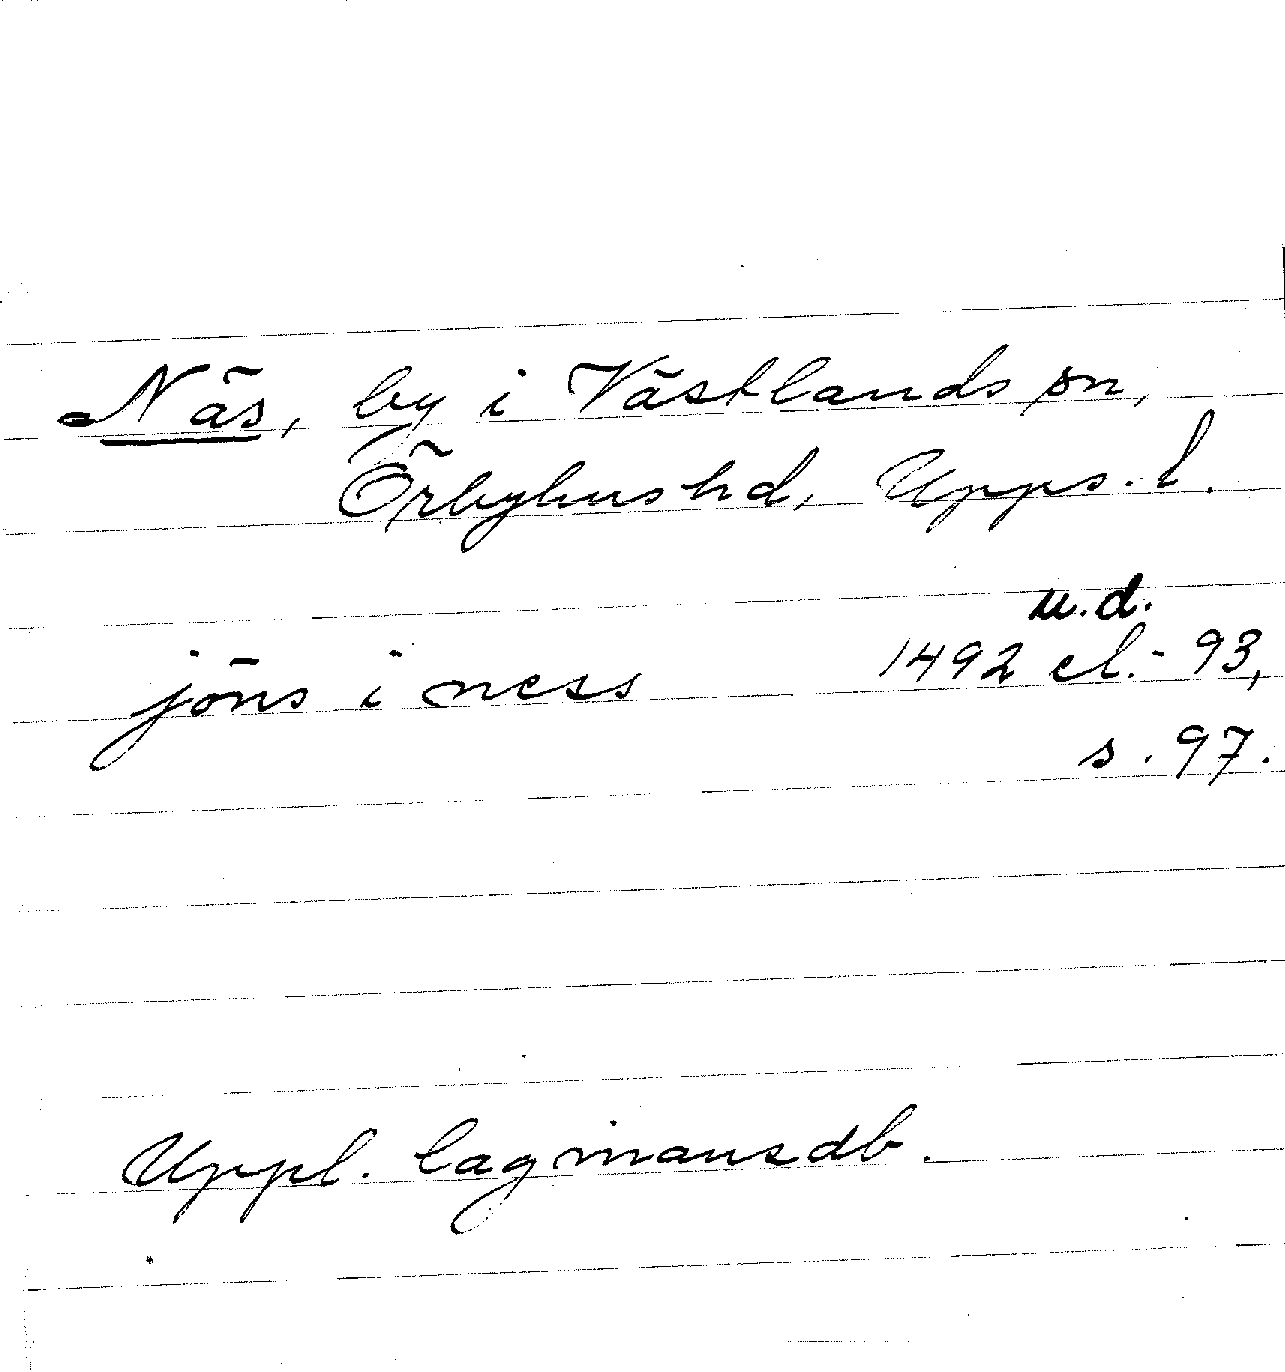 Näs, by i Västlands sn,
Örbyhus hd, Upps. l.
u.d.
jöns i ness 1492 el. - 93,
s. 97.
Uppl. lagmansdb.